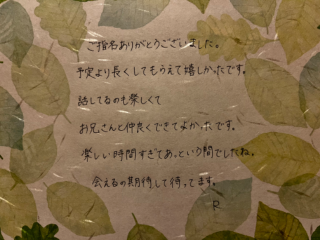 ご指名ありがとうございました。
予定より長くしてもらえて嬉しかったです。
話してるのも楽しくて
お兄さんと仲良くできてよかったです。
楽しい時間すぎてあっという間でしたね。
会えるの期待して待ってます。
R